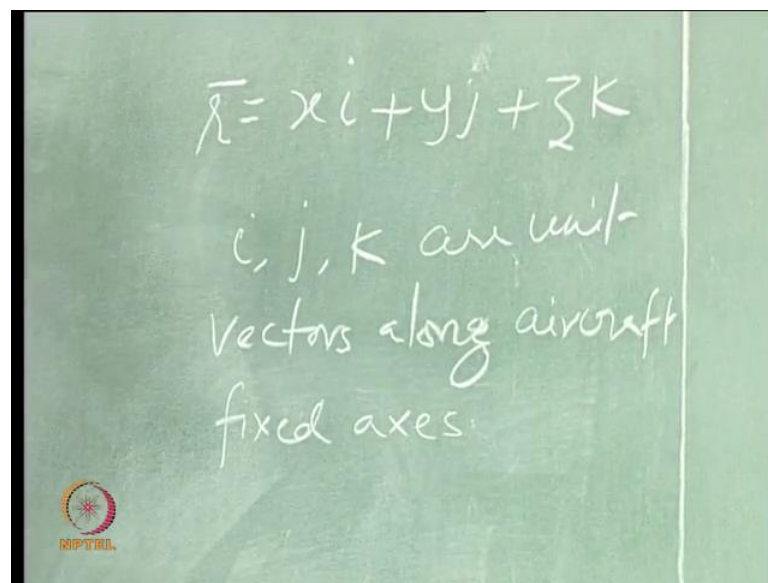 r̄ = xi + yj + zk
i, j, k are unit
vectors along aircraft
fixed axes.
NPTEL